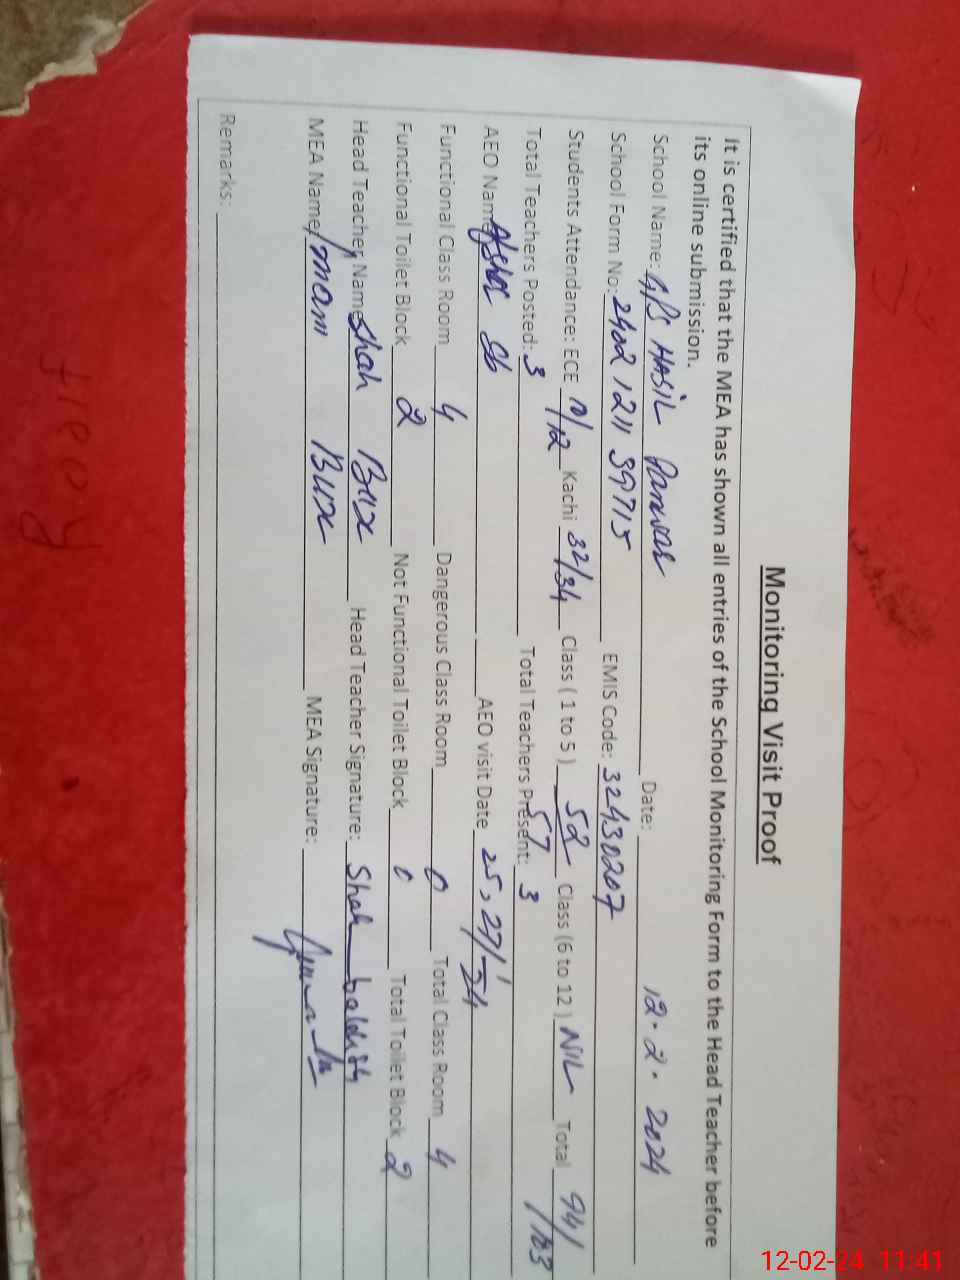 Monitoring Visit Proof
It is certified that the MEA has shown all entries of the School Monitoring Form to the Head Teacher before
its online submission.
School Name: G/PS HASIL Date: 12.2.2024
School Form No: 2402 1211 39715 EMIS Code: 32430207
Students Attendance: ECE 11/12 Kachi 32/34 Class ( 1 to 5 ) 52/57 Class (6 to 12 ) NIL Total 94/103
Total Teachers Posted: 3 Total Teachers Present: 3
AEO Name Afshar Sb AEO visit Date 25, 27/1-24
Functional Class Room 4 Dangerous Class Room 0 Total Class Room 4
Functional Toilet Block 2 Not Functional Toilet Block 0 Total Toilet Block 2
Head Teacher Name Shah Bux Head Teacher Signature: Shah
MEA Name Imam Bux MEA Signature:
Remarks:
12-02-24 11:41